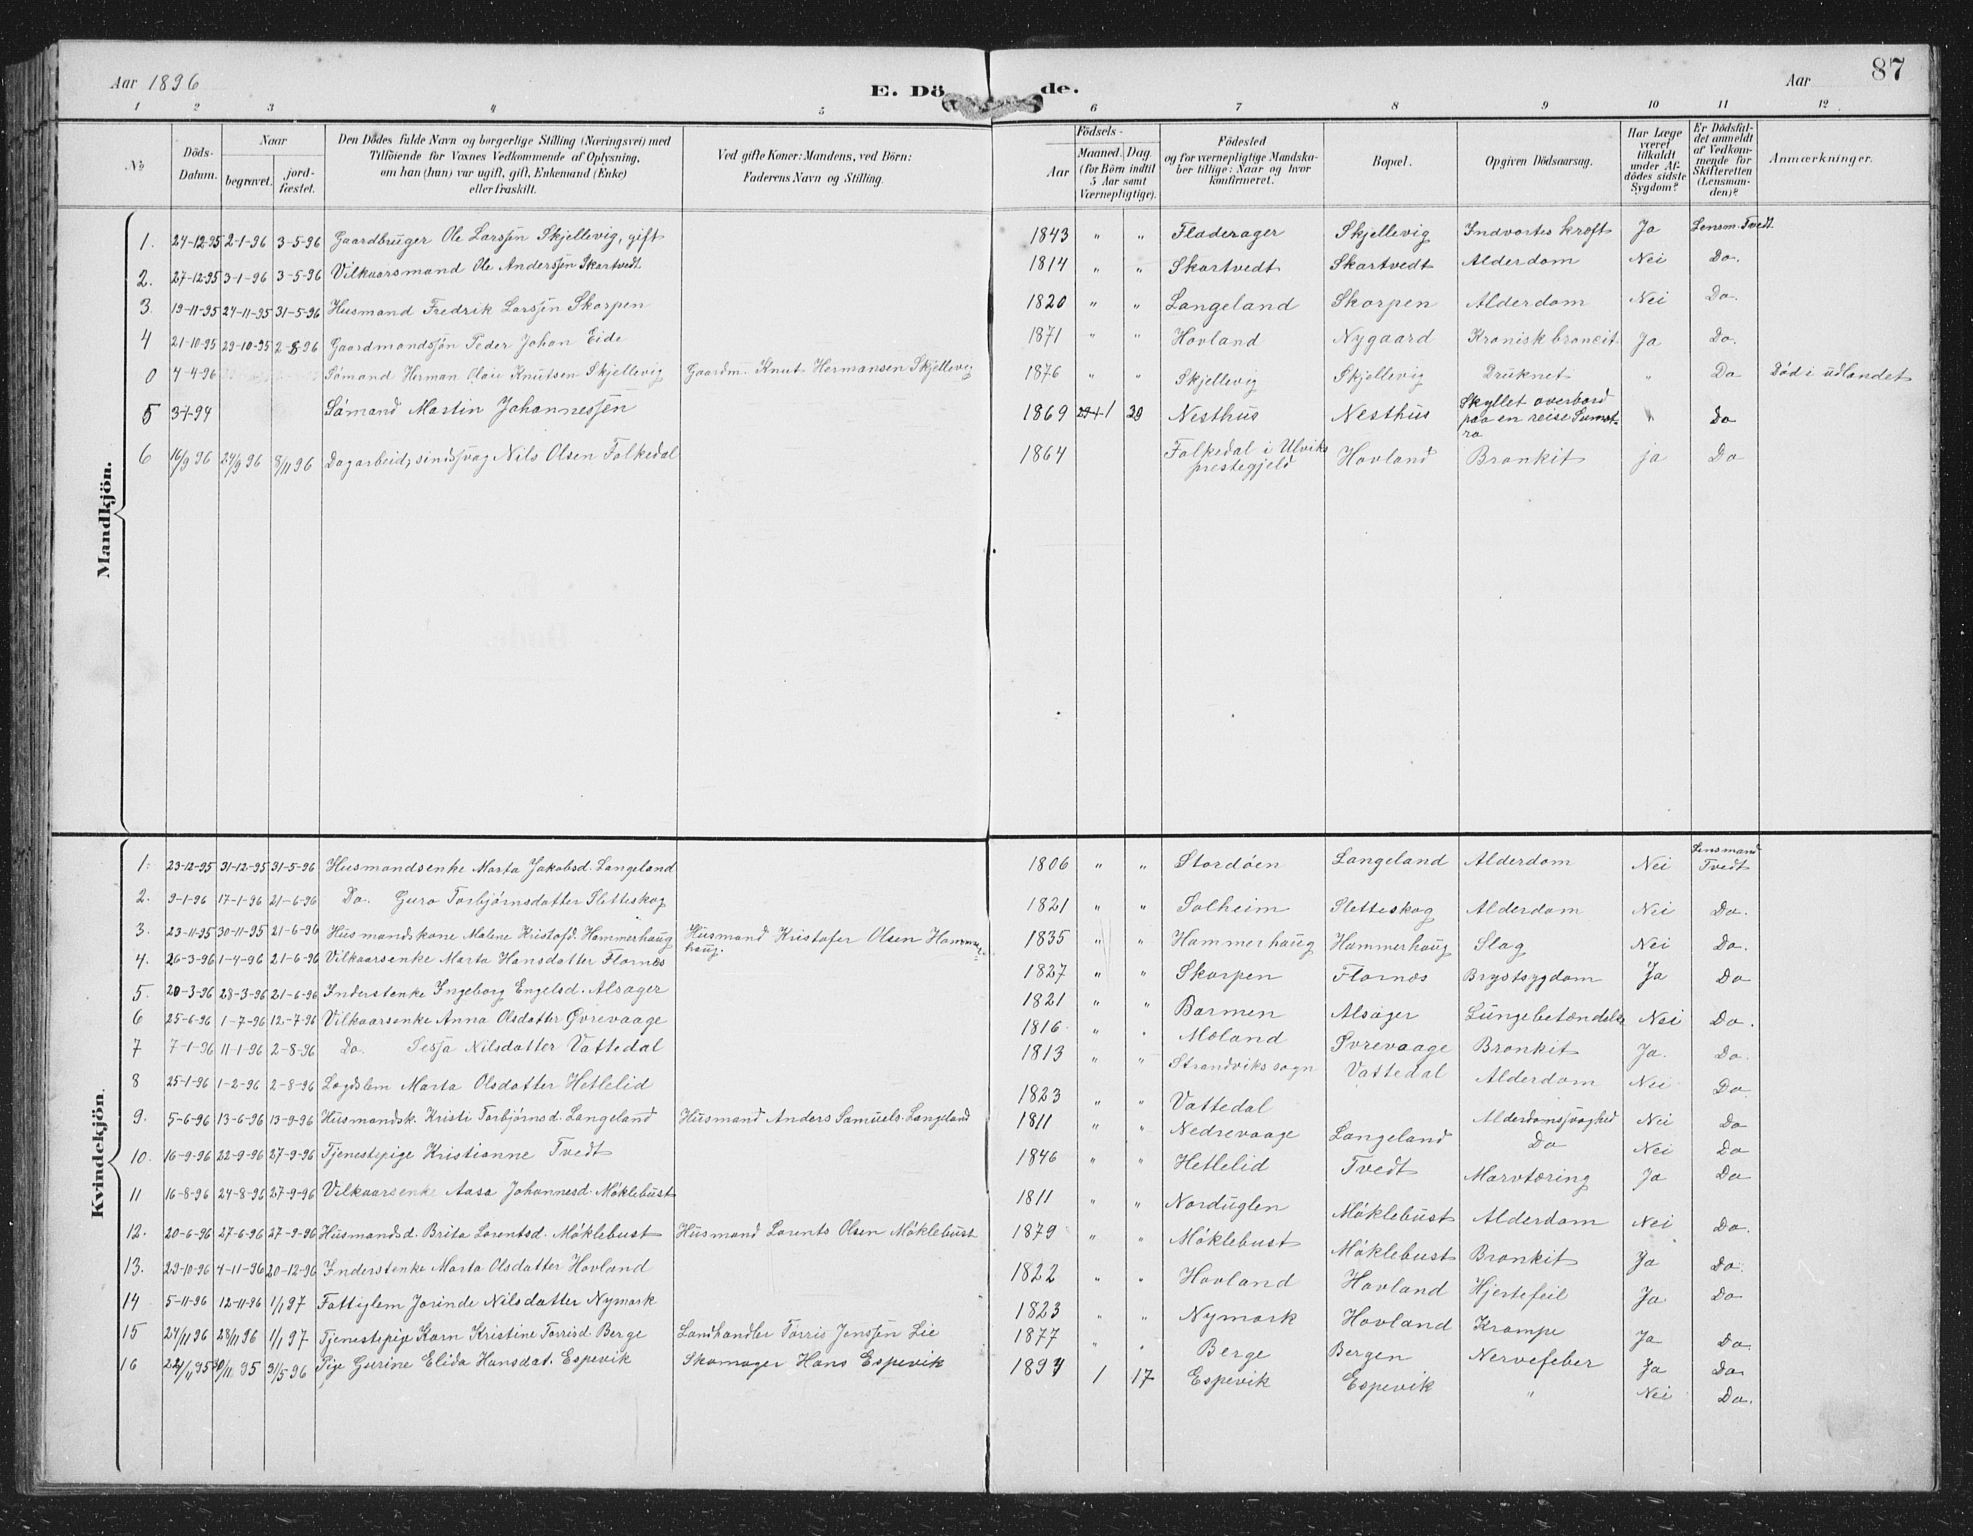 Aar 1896 E. Dö de. Aar 87
1 2 3 4 5 6 7 8 9 10 11 12
No
Döds-Datum.
Naar
begravet.
jord-fæstet.
Den Dödes fulde Navn og borgerlige Stilling (Næringsvei) med
Tilföiende for Voxnes Vedkommende af Oplysning,
om han (hun) var ugift, gift, Enkemand (Enke)
eller fraskilt.
Ved gifte Koner: Mandens, ved Börn:
Faderens Navn og Stilling.
Födsels-
Aar
Maaned. Dag.
(for Börn indtil
5 Aar samt
Værnepligtige).
Födested
og for værnepligtige Mandska-
ber tillige: Naar og hvor
konfirmeret.
Bopæl.
Opgiven Dödsaarsag.
Har Læge
været
tilkaldt
under Af-
dödes sidste
Sygdom?
Er Dödsfal-
det anmeldt
af Vedkom-
mende for
Skifteretten
(Lensman-
den)?
Anmærkninger.
Mandkjön.
1. 24-12-95 2-1-96 3-5-96 Gaardbruger Ole Larssen Skjellevig, gift 1843 " " Fladerager Skjellevig Indvortes kræft Ja Lensm. Tvedt
2. 27-12-95 3-1-96 3-5-96 Vilkaarsmand Ole Anderssen Skartvedt 1814 " " Skartvedt Skartvedt Alderdom Nei Do.
3 19-11-95 24-11-95 31-5-96 Husmand Fredrik Larssen Skorpen 1820 " " Langeland Skorpen Alderdom Nei Do.
4 21-10-95 29-10-95 2-8-96 Gaardmandssön Peder Johan Eide 1871 " " Hovland Nygaard Kronisk bronkit Ja Do.
0 4-4-96 Sömand Herman Olai Knutsen Skjellevig Gaardm. Knut Hermansen Skjellevig 1876 " " Skjellevig Skjellevig Druknet " Do Död i udlandet
5 94 Sömand Martin Johannessen 1869 1 20 Nesthus Nesthus Skyllet overbord
paa en reise Sumat-
ra " Do
6 16/9 96 24/9 96 8/11 96 Dagarbeid, sindssvag Nils Olsen Folkedal 1864 Folkedal i Ulviks
prestegjeld Hovland Bronkit ja Do
Kvindekjön.
1. 23-12-95 31-12-95 31-5-96 Husmandsenke Marta Jakobsd. Langeland 1806 " " Stordöen Langeland Alderdom Nei Lensmand
Tvedt
2. 9-1-96 17-1-96 21-6-96 Do. Guro Torbjörnsdatter Sletteskog 1821 " " Solheim Sletteskog Alderdom Nei Do.
3. 23-11-95 30-11-95 21-6-96 Husmandskone Malene Kristofd. Hammerhaug Husmand Kristofer Olsen Hammer-
haug. 1835 " " Hammerhaug Hammerhaug Slag Nei Do.
4. 26-3-96 1-4-96 21-6-96 Vilkaarsenke Marta Hansdatter Flornæs 1827 " " Skorpen Flornæs Brystsygdom Ja Do
5. 20-3-96 28-3-96 21-6-96 Inderstenke Ingeborg Engelsd. Alsager 1821 " " Barmen Alsager Lungebetændelse Nei Do.
6 25-6-96 1-7-96 12-7-96 Vilkaarsenke Anna Olsdatter Övrevaage 1816 " " Mæland Övrevaage Bronkit Ja. Do.
7 7-1-96 11-1-96 2-8-96 Do. Sesja Nilsdatter Vattedal 1813 " " Strandviks sogn Vattedal Alderdom Nei Do.
8 25-1-96 1-2-96 2-8-96 Lægdslem Marta Olsdatter Hetlelid 1823 " " Vattedal Alderdomssvaghed Nei Do
9. 5-6-96 13-6-96 13-9-96 Husmandsk. Kristi Torbjörnsd. Langeland Husmand Anders Samuels. Langeland 1811 " " Nedrevaage Langeland Do Nei Do
10. 16-9-96 22-9-96 27-9-96 Tjenestepige Kristianne Tvedt 1846 " " Hetlelid Tvedt Marvtæring Ja Do
11 16-8-96 24-8-96 27-9-96 Vilkaarsenke Aasa Johannesd. Möklebust 1811 " " Norduglen Möklebust Alderdom Nei Do.
12. 20-6-96 27-6-96 27-9-96 Husmandsd. Brita Lorentsd. Möklebust Husmand Lorents Olsen Möklebust 1879 " " Möklebust Möklebust Bronkit Ja Do.
13. 29-10-96 4-11-96 20-12-96 Inderstenke Marta Olsdatter Hovland 1822 " " Hovland Hovland Hjertefeil Ja Do
14 5-11-96 12-11-96 1/1 97 Fattiglem Jorinde Nilsdatter Nymark 1823 " " Nymark Hovland Krampe Ja Do
15 24/11 96 28/11 96 1/1 97 Tjenestepige Karn Kristine Torrisd Berge Landhandler Torris Jenssen Lie 1877 " " Berge Bergen Nervefeber Ja Do
16 22/11 95 30/11 95 31/5 96 Pige Gurine Elida Hansdat. Espevik Skomager Hans Espevik 1894 1 17 Espevik Espevik " Nei Do.